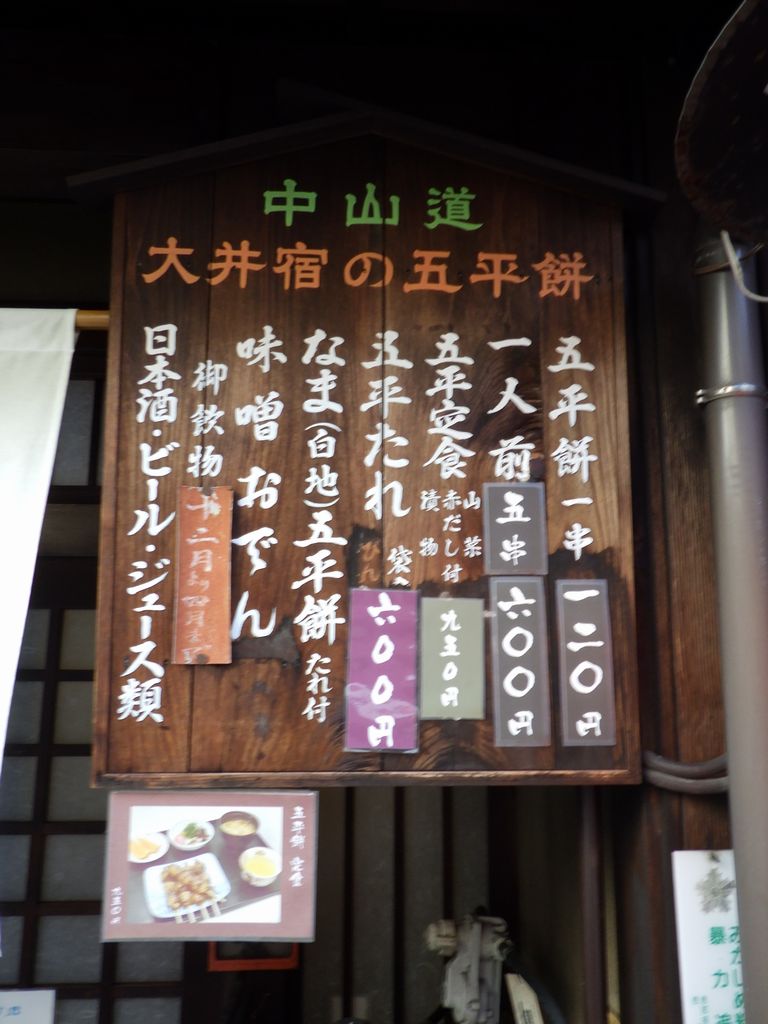 中山道
大井宿の五平餅
五平餅一串 一二〇円
一人前 五串 六〇〇円
五平定食 山菜 赤だし付 漬物 九五〇円
五平たれ 六〇〇円
なま(白地)五平餅 たれ付
味噌おでん
御飲物
日本酒・ビール・ジュース類
五平餅 定食
九五〇円
暴力